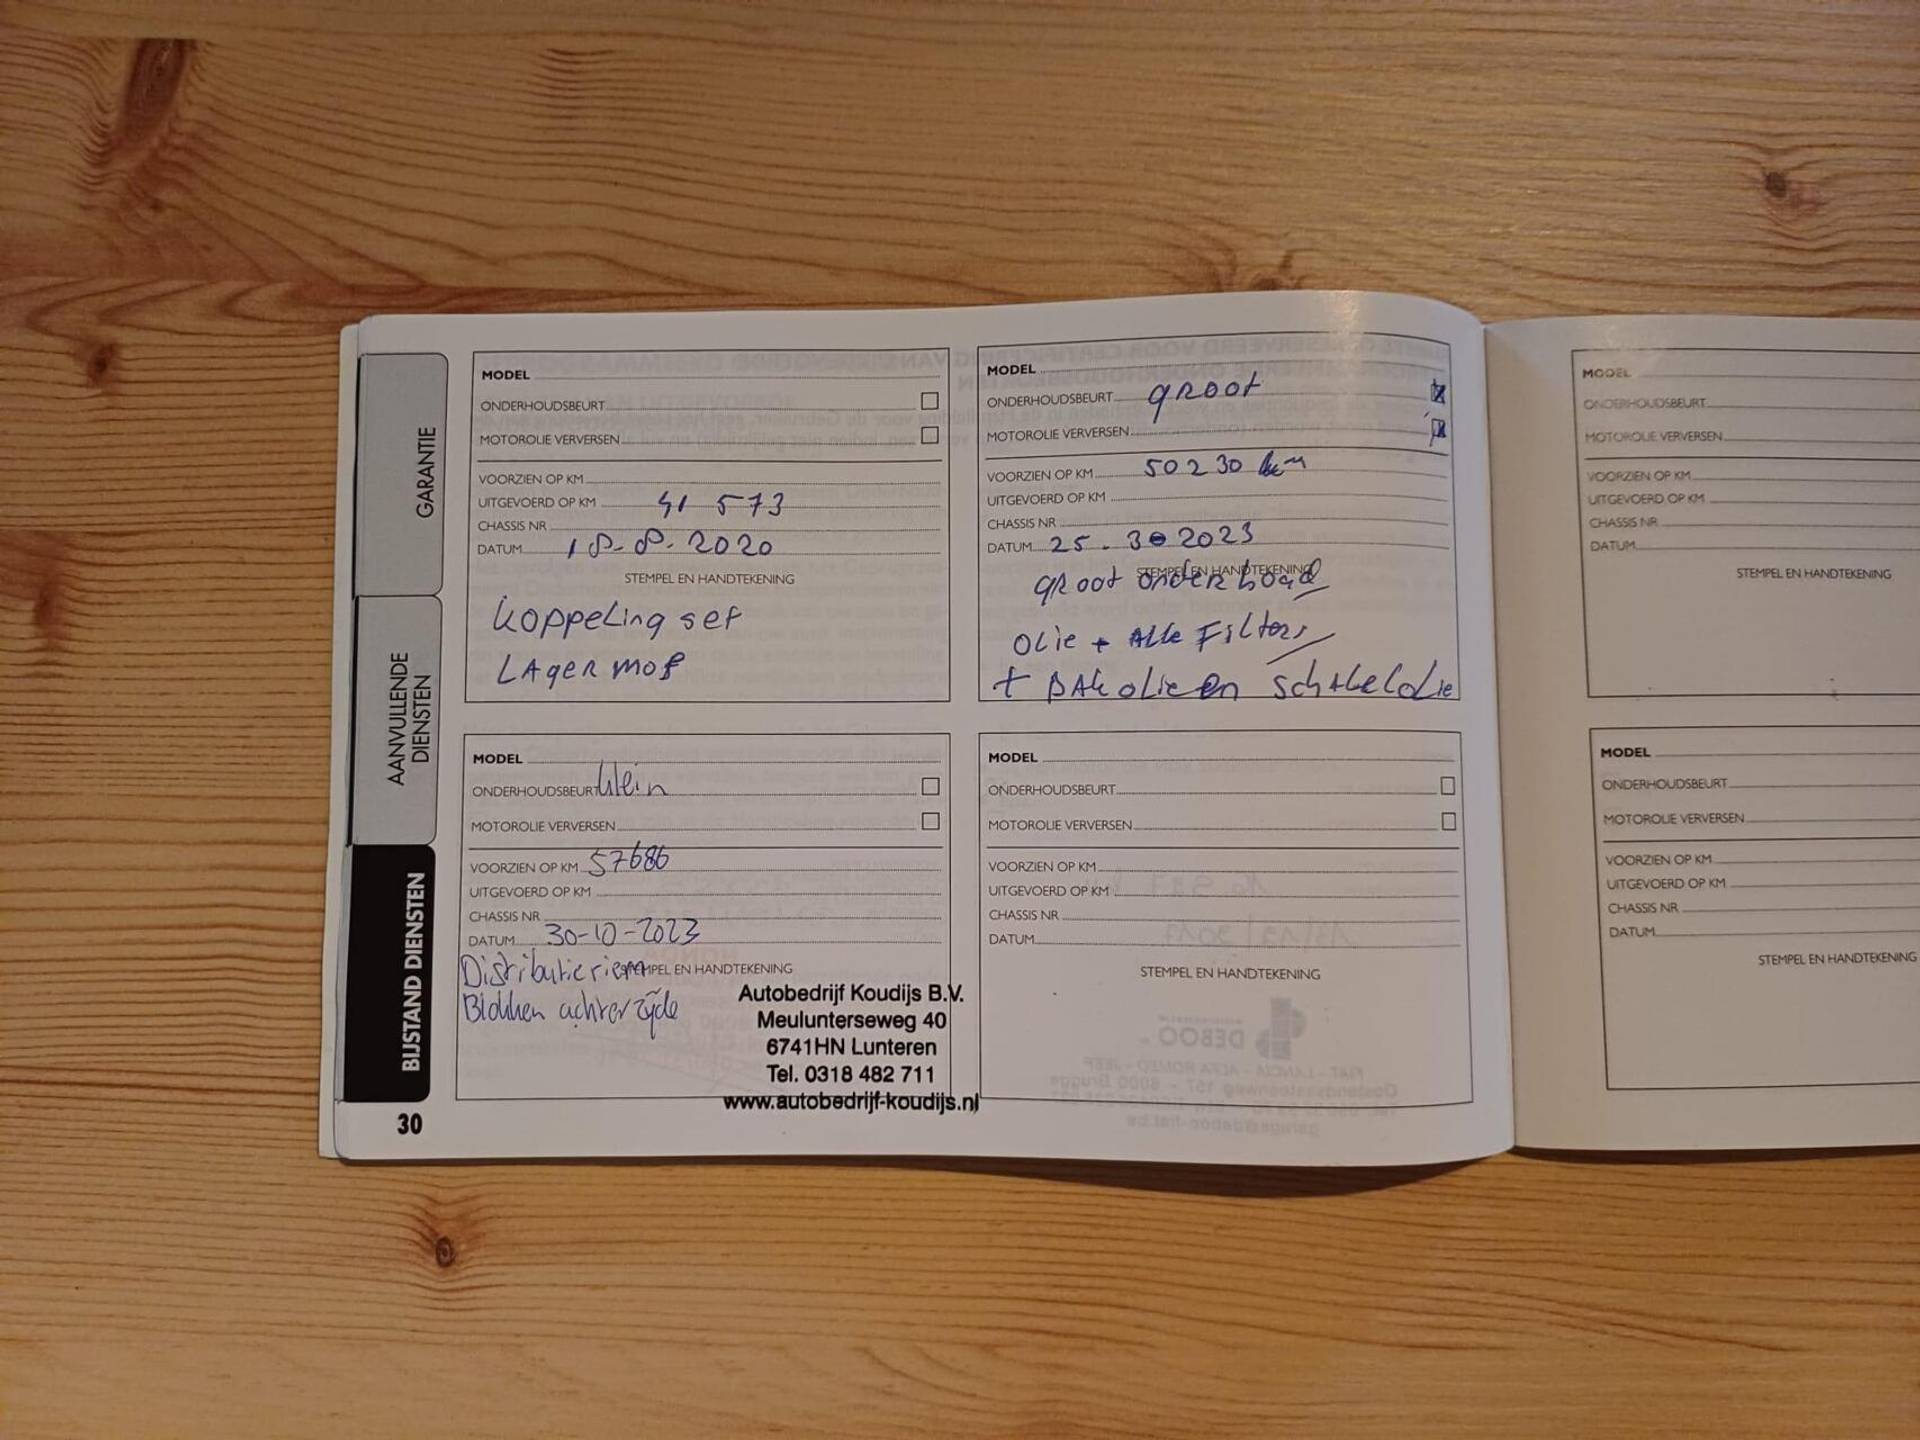 GARANTIE
AANVULLENDE
DIENSTEN
BIJSTAND DIENSTEN
30
MODEL
ONDERHOUDSBEURT
MOTOROLIE VERVERSEN
VOORZIEN OP KM
UITGEVOERD OP KM 41 573
CHASSIS NR
DATUM 18-8-2020
STEMPEL EN HANDTEKENING
koppeling set
LAger mof
MODEL
ONDERHOUDSBEURT groot
MOTOROLIE VERVERSEN
VOORZIEN OP KM 50230 km
UITGEVOERD OP KM
CHASSIS NR
DATUM 25-3 2023
STEMPEL EN HANDTEKENING
groot onderhoud
OLie + Alle Filters
+ BAk olie en schakelolie
MODEL
ONDERHOUDSBEURT klein
MOTOROLIE VERVERSEN
VOORZIEN OP KM 57686
UITGEVOERD OP KM
CHASSIS NR
DATUM 30-10-2023
STEMPEL EN HANDTEKENING
Distributieriem
Blokken achterzijde
Autobedrijf Koudijs B.V.
Meulunterseweg 40
6741HN Lunteren
Tel. 0318 482 711
www.autobedrijf-koudijs.nl
MODEL
ONDERHOUDSBEURT
MOTOROLIE VERVERSEN
VOORZIEN OP KM
UITGEVOERD OP KM
CHASSIS NR
DATUM
STEMPEL EN HANDTEKENING
MODEL
ONDERHOUDSBEURT
MOTOROLIE VERVERSEN
VOORZIEN OP KM
UITGEVOERD OP KM
CHASSIS NR
DATUM
STEMPEL EN HANDTEKENING
MODEL
ONDERHOUDSBEURT
MOTOROLIE VERVERSEN
VOORZIEN OP KM
UITGEVOERD OP KM
CHASSIS NR
DATUM
STEMPEL EN HANDTEKENING